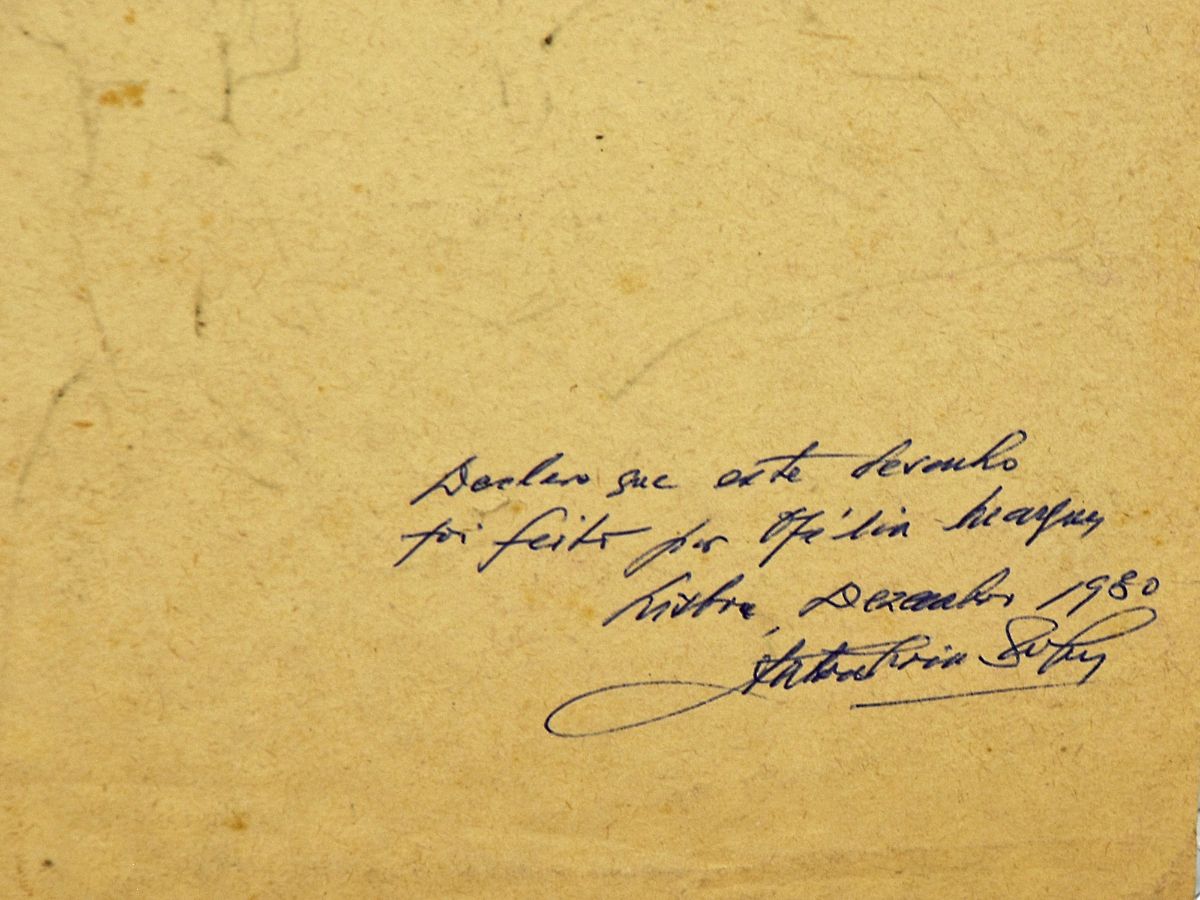 Declaro que este desenho
foi feito por Ofélia Marques
Lisboa, Dezembro 1980